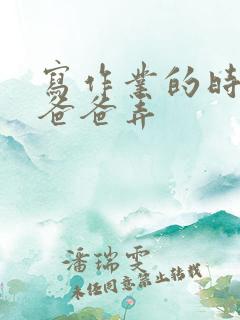 寫作業的時
爸爸弄
潘瑞雯
未經同意禁止轉載